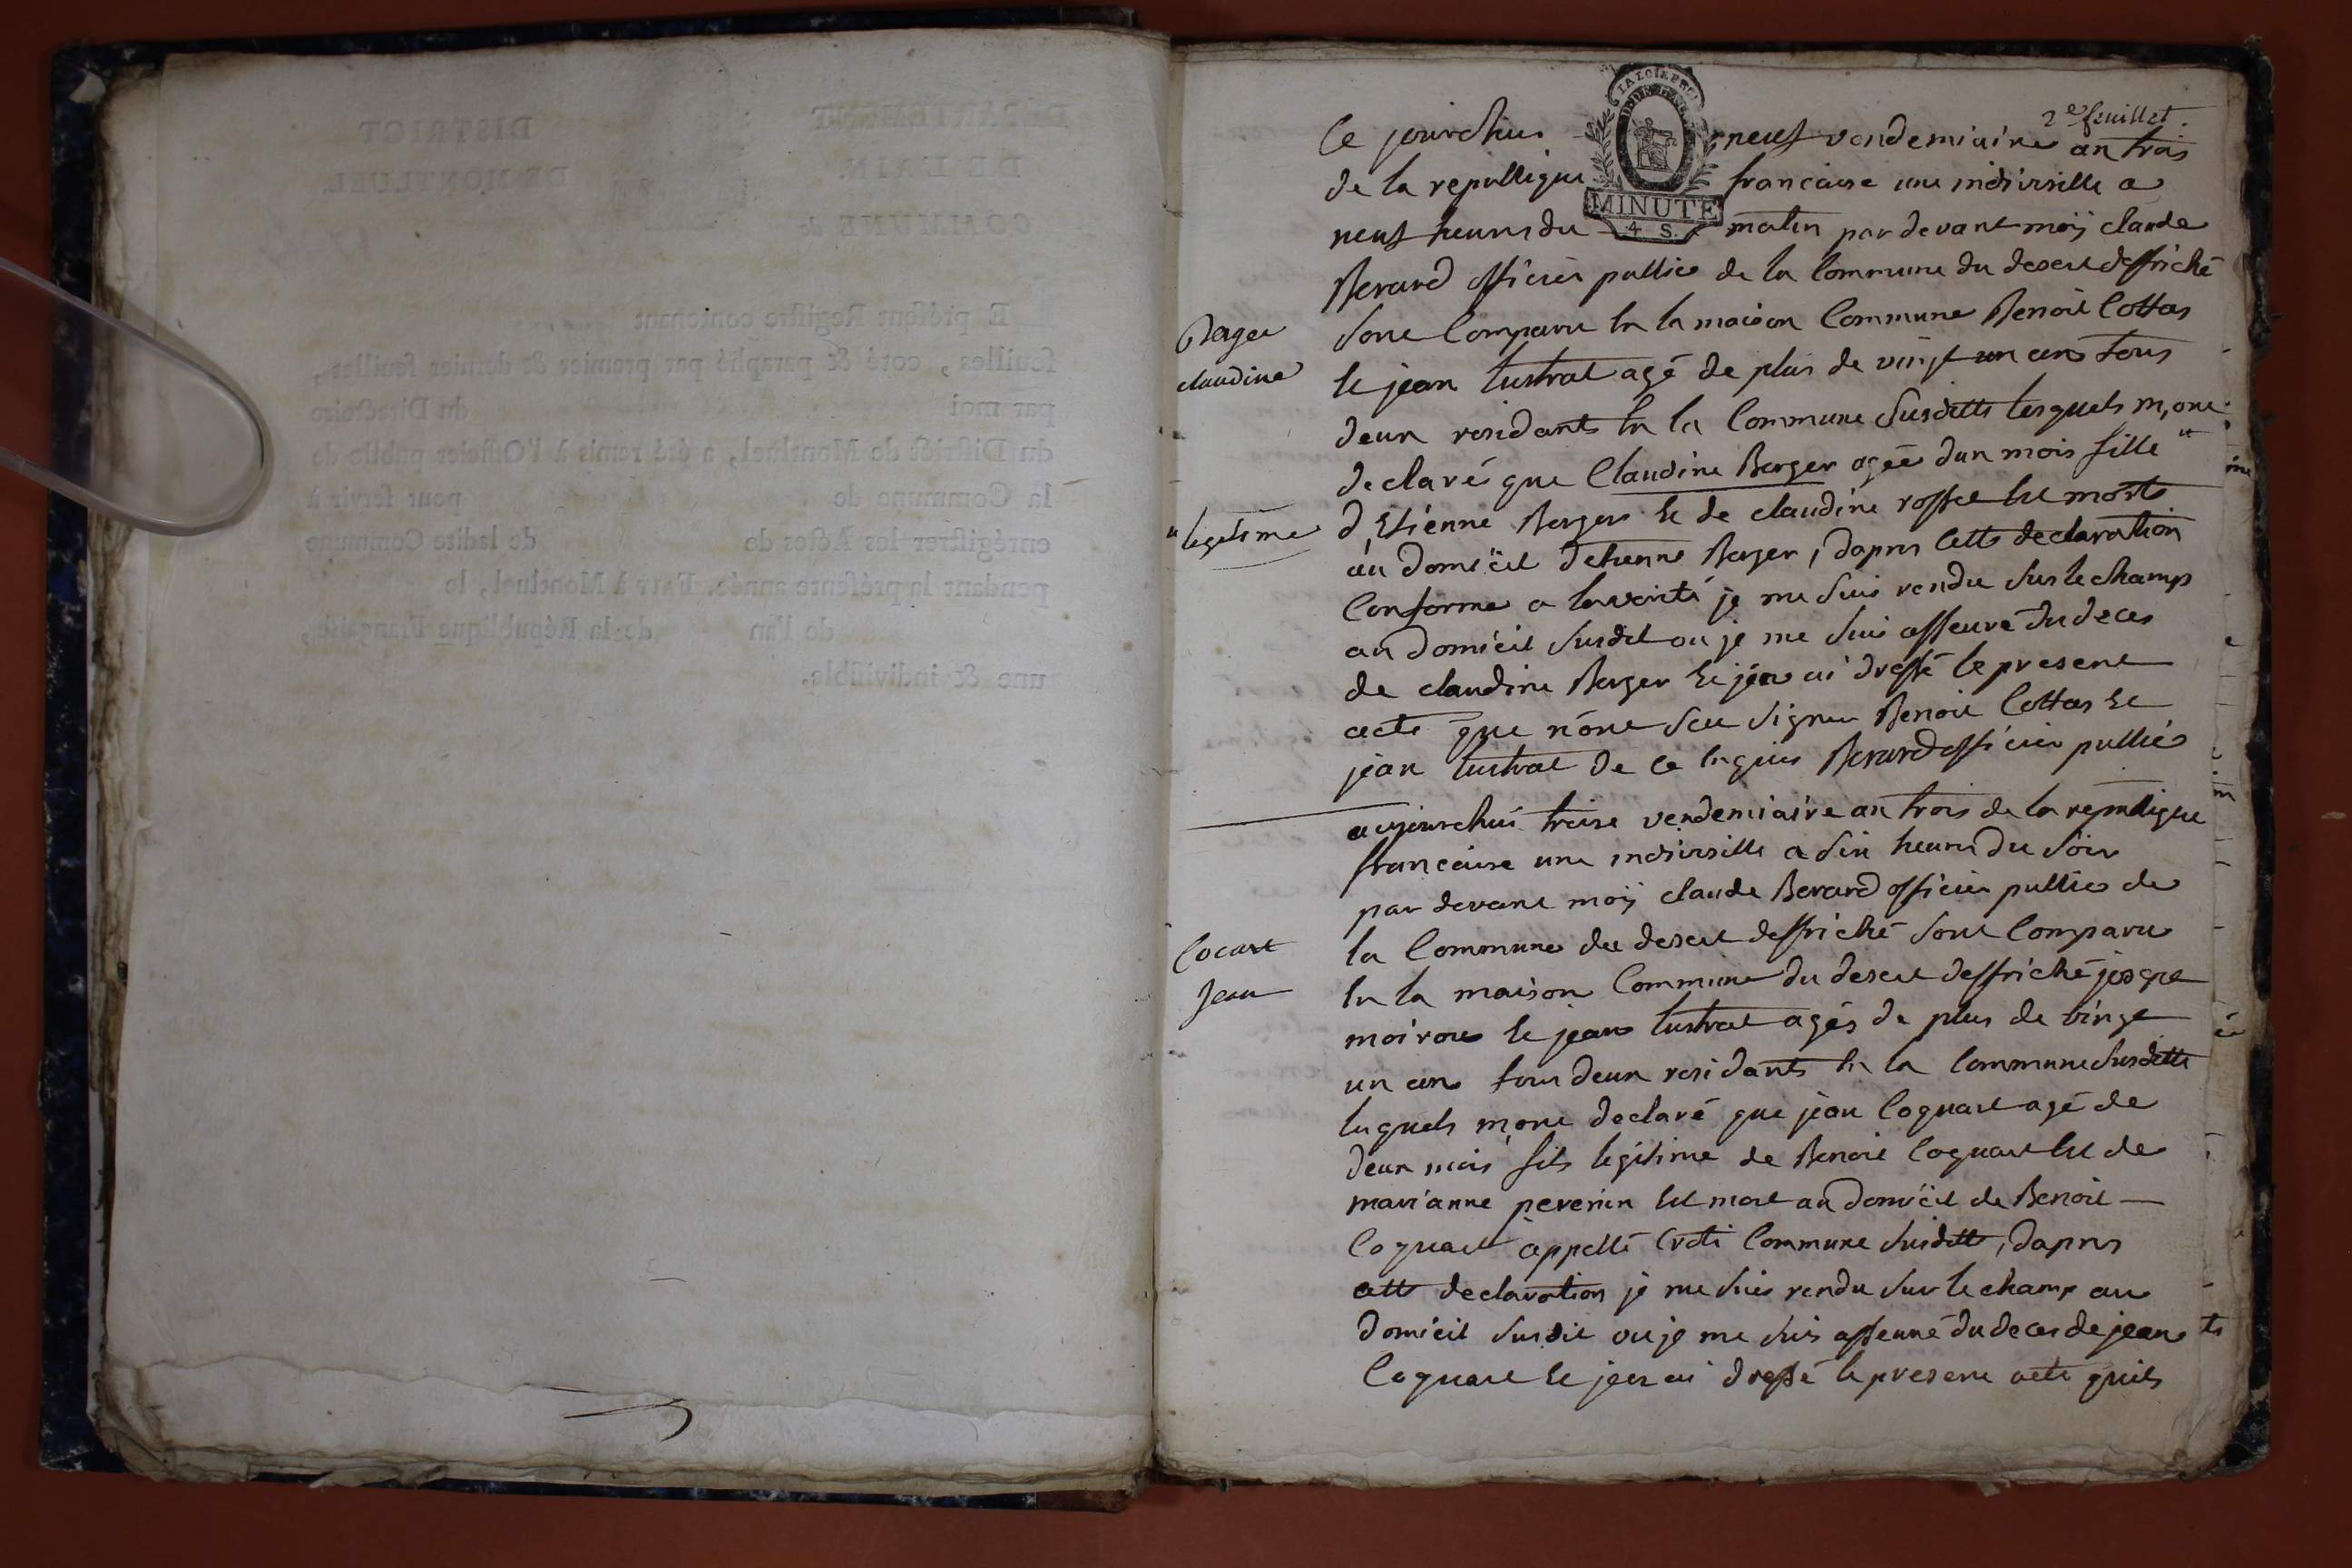 2e feuillet.
Ce jourdhui neuf vendemiaire an trois
de la republique francaise une indivisible a
neuf heures du matin par devant moÿ claude
Berard officier public de la Commune du desert deffriché
sont Comparu En la maison Commune Benoit Cottas
Et jean lustrat agé de plus de vingt un ans tous
deux residants En la Commune Susditte lesquels m,ont
declaré que Claudine Berger agéé dun mois fille "
d'Etienne Berger Et de claudine rosset Est morte
au domicil detienne Berger, dapres Cette declaration
Conforme a la verité je me suis rendu sur le champ
au domicil susdit ou je me suis asseuré du deces
de claudine Berger Et jen ai dressé le present
acte que n'ont sceu signer Benoit Cottas Et
jean lustrat de ce Enquis Berard officier public
Berger
claudine
" legetime
aujourdhui treise vendemiaire an trois de la republique
francaise une indivisible a six heures du soir
par devant moÿ claude Berard officier public de
la Commune du desert deffriché sont Comparu
En la maison Commune du desert deffriché
moiroux Et jean lustrat agés de plus de vingt
un ans tous deux residants En la Commune susditte
lesquels m,ont declaré que jean Coquart agé de
deux mois fils legitime de Benoit Coquart Et de
marianne pevenin Est mort au domicil de Benoit
Coquart appellé Commune susditte, dapres
cette declaration je me suis rendu sur le champ au
domicil susdit ou je me suis asseuré du deces de jean
Coquart Et jen ai dressé le present acte quils
Cocart
Jean
LA LOI
MINUTE
4 S.
DEPARTEMENT
DE L'AIN.
COMMUNE de
DISTRICT
DE MONTLUEL
E préſent Regiſtre contenant
feuilles, coté & paraphé par premier & dernier feuillet,
par moi du Directoire
du Diſtrict de Montluel, a été remis à l'Officier public de
la Commune de pour ſervir à
enrégiſtrer les Actes de de ladite Commune
pendant la préſente année. FAIT à Montluel, le
de l'an de la République Françaiſe,
une & indiviſible.